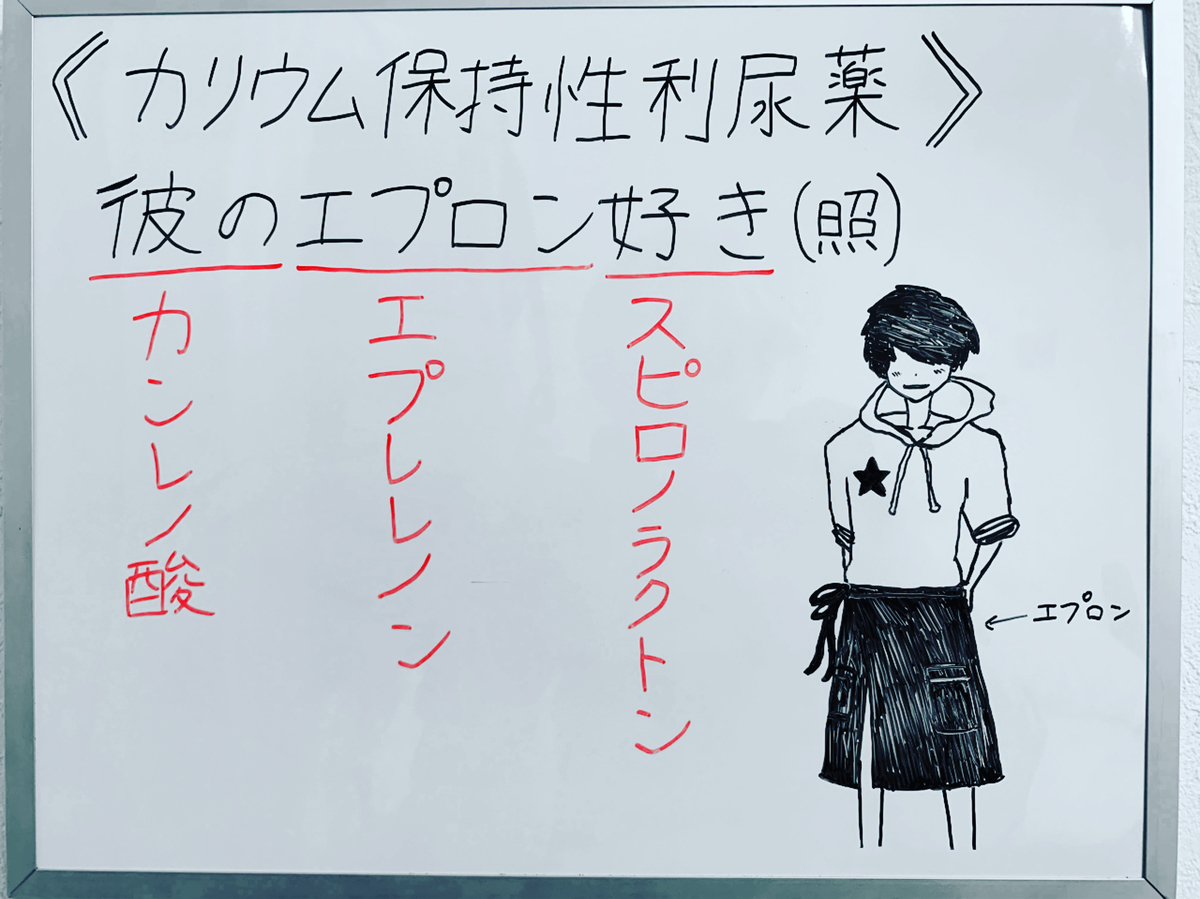 《カリウム保持性利尿薬》
彼のエプロン好き(照)
カンレノ酸
エプレレノン
スピロノラクトン
←エプロン